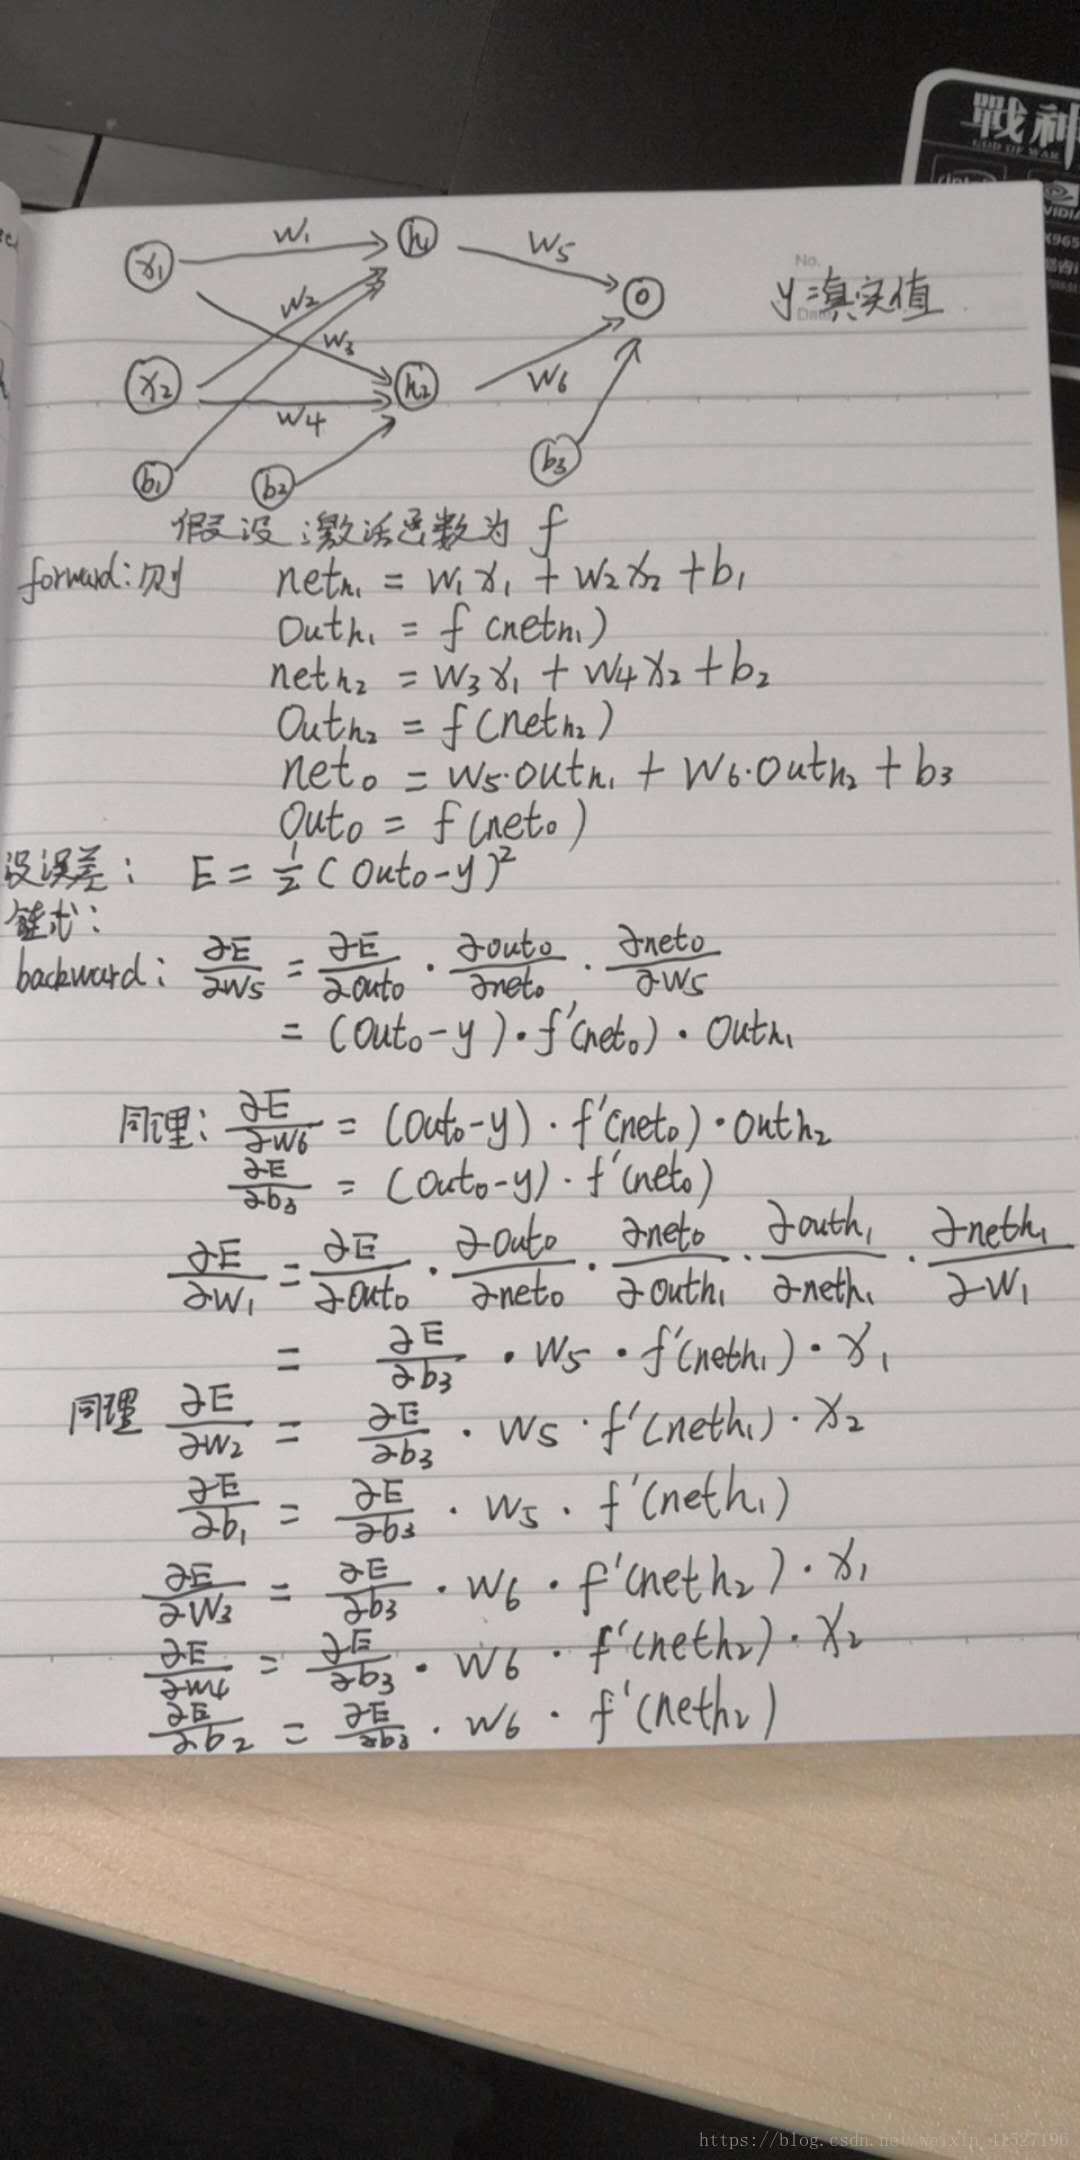 戰神
GOD OF WAR
intel
VIDIA
X965
No.
Date
x₁ w₁ h₁ w₅ o
y = 真实值
w₂ w₃
x₂ w₄ h₂ w₆
b₁ b₂ b₃
假设激活函数为 f
forward: 则 netₕ₁ = w₁x₁ + w₂x₂ + b₁
outₕ₁ = f(netₕ₁)
netₕ₂ = w₃x₁ + w₄x₂ + b₂
outₕ₂ = f(netₕ₂)
net₀ = w₅·outₕ₁ + w₆·outₕ₂ + b₃
out₀ = f(net₀)
设误差: E = ½(out₀-y)²
链式:
backward: ∂E/∂w₅ = ∂E/∂out₀ · ∂out₀/∂net₀ · ∂net₀/∂w₅
= (out₀-y)·f′(net₀)·outₕ₁
同理: ∂E/∂w₆ = (out₀-y)·f′(net₀)·outₕ₂
∂E/∂b₃ = (out₀-y)·f′(net₀)
∂E/∂w₁ = ∂E/∂out₀ · ∂out₀/∂net₀ · ∂net₀/∂outh₁ · ∂outh₁/∂neth₁ · ∂neth₁/∂w₁
= ∂E/∂b₃ · w₅ · f′(neth₁) · x₁
同理 ∂E/∂w₂ = ∂E/∂b₃ · w₅ · f′(neth₁) · x₂
∂E/∂b₁ = ∂E/∂b₃ · w₅ · f′(neth₁)
∂E/∂w₃ = ∂E/∂b₃ · w₆ · f′(neth₂) · x₁
∂E/∂w₄ = ∂E/∂b₃ · w₆ · f′(neth₂) · x₂
∂E/∂b₂ = ∂E/∂b₃ · w₆ · f′(neth₂)
https://blog.csdn.net/weixin_41527196